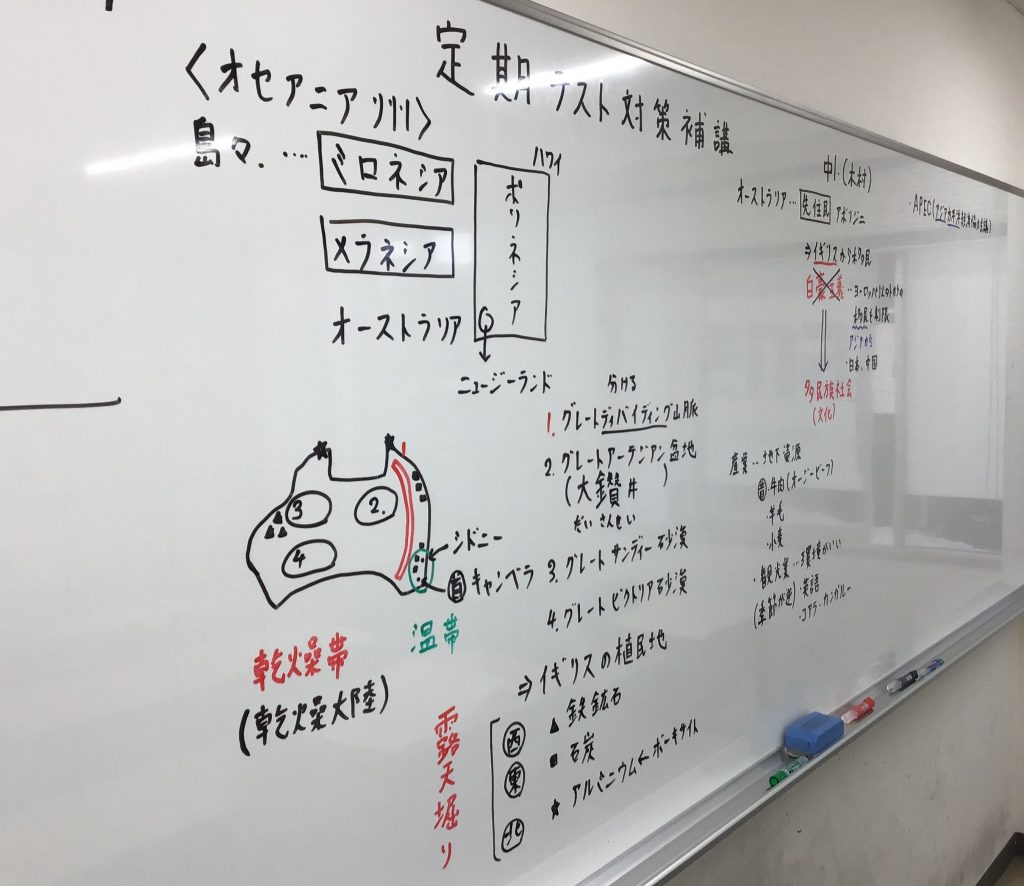 定期テスト対策補講
<オセアニア州>
島々.…
ミロネシア
メラネシア
ハワイ
ポリネシア
オーストラリア
ニュージーランド
分ける
1. グレートディバイディング山脈
2. グレートアーテジアン盆地
(大鑽井)
だいさんせい
3. グレートサンディー砂漠
4. グレートビクトリア砂漠
⇒イギリスの植民地
3
2.
4
シドニー
首 キャンベラ
温帯
乾燥帯
(乾燥大陸)
露天堀り
西 ▲ 鉄鉱石
東 ■ 石炭
北 ★ アルミニウム←ボーキサイト
中1.(木村)
オーストラリア…先住民 アボリジニ
⇒イギリスから移民
白豪主義…ヨーロッパ
移民を制限
アジアから
・日本、中国
多民族社会
(文化)
・APEC(アジア太平洋経済協力会議)
産業…地下資源
・牛肉(オージービーフ)
・羊毛
・小麦
・観光業…環境がいい
(季節が逆)・英語
・コアラ・カンガルー